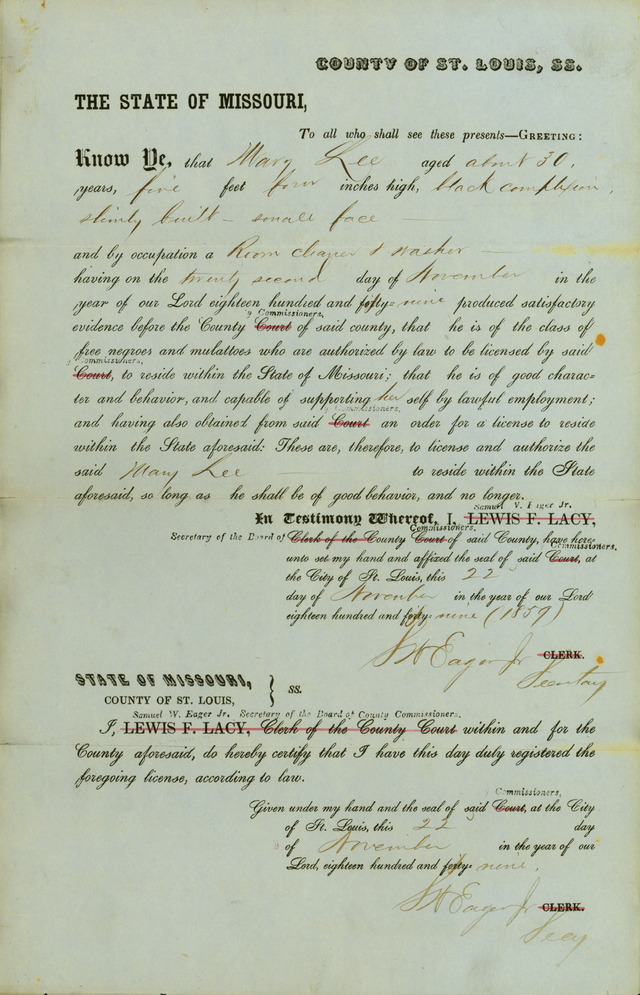 COUNTY OF ST. LOUIS, SS.
THE STATE OF MISSOURI,
To all who shall see these presents—GREETING:
Know Ye, that Mary Lee aged about 30,
years, five feet four inches high, black complexion,
slimly built - small face -
and by occupation a Room cleaner & washer -
having on the twenty second day of November in the
year of our Lord eighteen hundred and fifty-nine produced satisfactory
Commissioners,
evidence before the County Court of said county, that he is of the class of
free negroes and mulattoes who are authorized by law to be licensed by said
Commissioners.
Court, to reside within the State of Missouri; that he is of good charac-
ter and behavior, and capable of supporting her self by lawful employment;
Commissioners.
and having also obtained from said Court an order for a license to reside
within the State aforesaid: These are, therefore, to license and authorize the
said Mary Lee - to reside within the State
aforesaid, so long as he shall be of good behavior, and no longer.
Samuel V. Eager Jr.
In Testimony Whereof, I, LEWIS F. LACY,
Commissioners.
Secretary of the Board of Clerk of the County Court of said County, have here-
Commissioners.
unto set my hand and affixed the seal of said Court, at
the City of St. Louis, this 22
day of November in the year of our Lord
eighteen hundred and fifty-nine (1859)
S W Eager Jr CLERK.
Secretary
STATE OF MISSOURI,
COUNTY OF ST. LOUIS, } ss.
Samuel W. Eager Jr. Secretary of the Board of County Commissioners.
I, LEWIS F. LACY, Clerk of the County Court within and for the
County aforesaid, do hereby certify that I have this day duly registered the
foregoing license, according to law.
Commissioners,
Given under my hand and the seal of said Court, at the City
of St. Louis, this 22 day
of November in the year of our
Lord, eighteen hundred and fifty-nine,
S W Eager Jr CLERK.
Secy